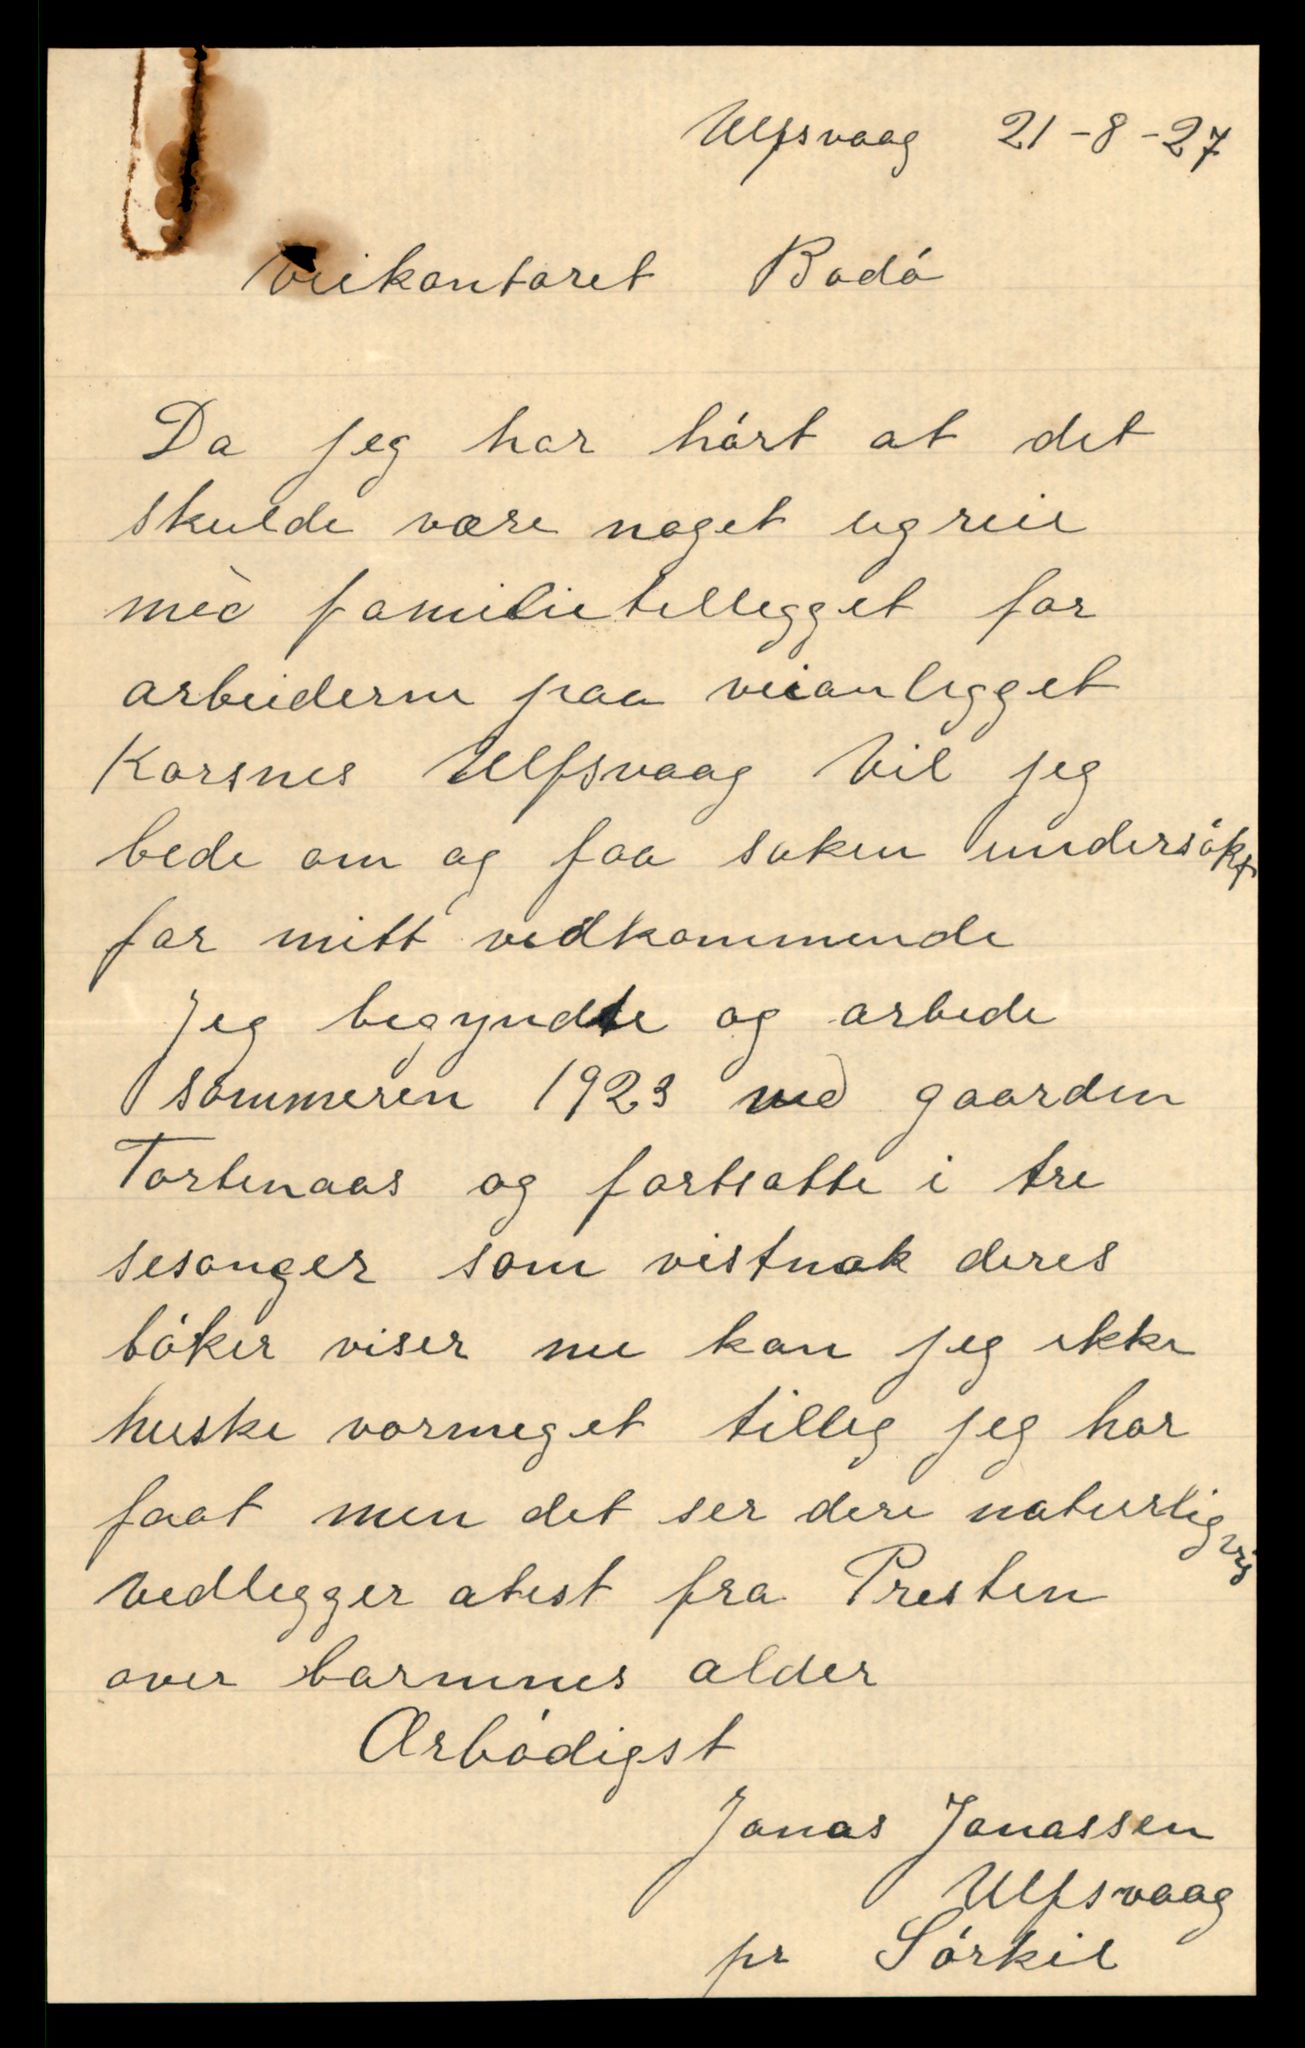 Ulfsvaag 21-8-27
Veikontoret Bodó
Da jeg har hórt at det
skulde være noget ugreie
med familietillegget for
arbeiderne paa veianlegget
Korsnes Ulfsvaag Vil jeg
bede om og faa saken undersókt
for mitt vedkommende
Jeg begyndte og arbede
sommeren 1923 ved gaarden
Tortenaas og fortsatte i tre
sesonger som vistnok deres
bóker viser nu kan jeg ikke
huske vormeget tilleg jeg har
faat men det ser dere naturligvis
Vedlegger atest fra Presten
over barnnes alder
Ærbódigst
Jonas Jonassen
Ulfsvaag
pr Sórkil